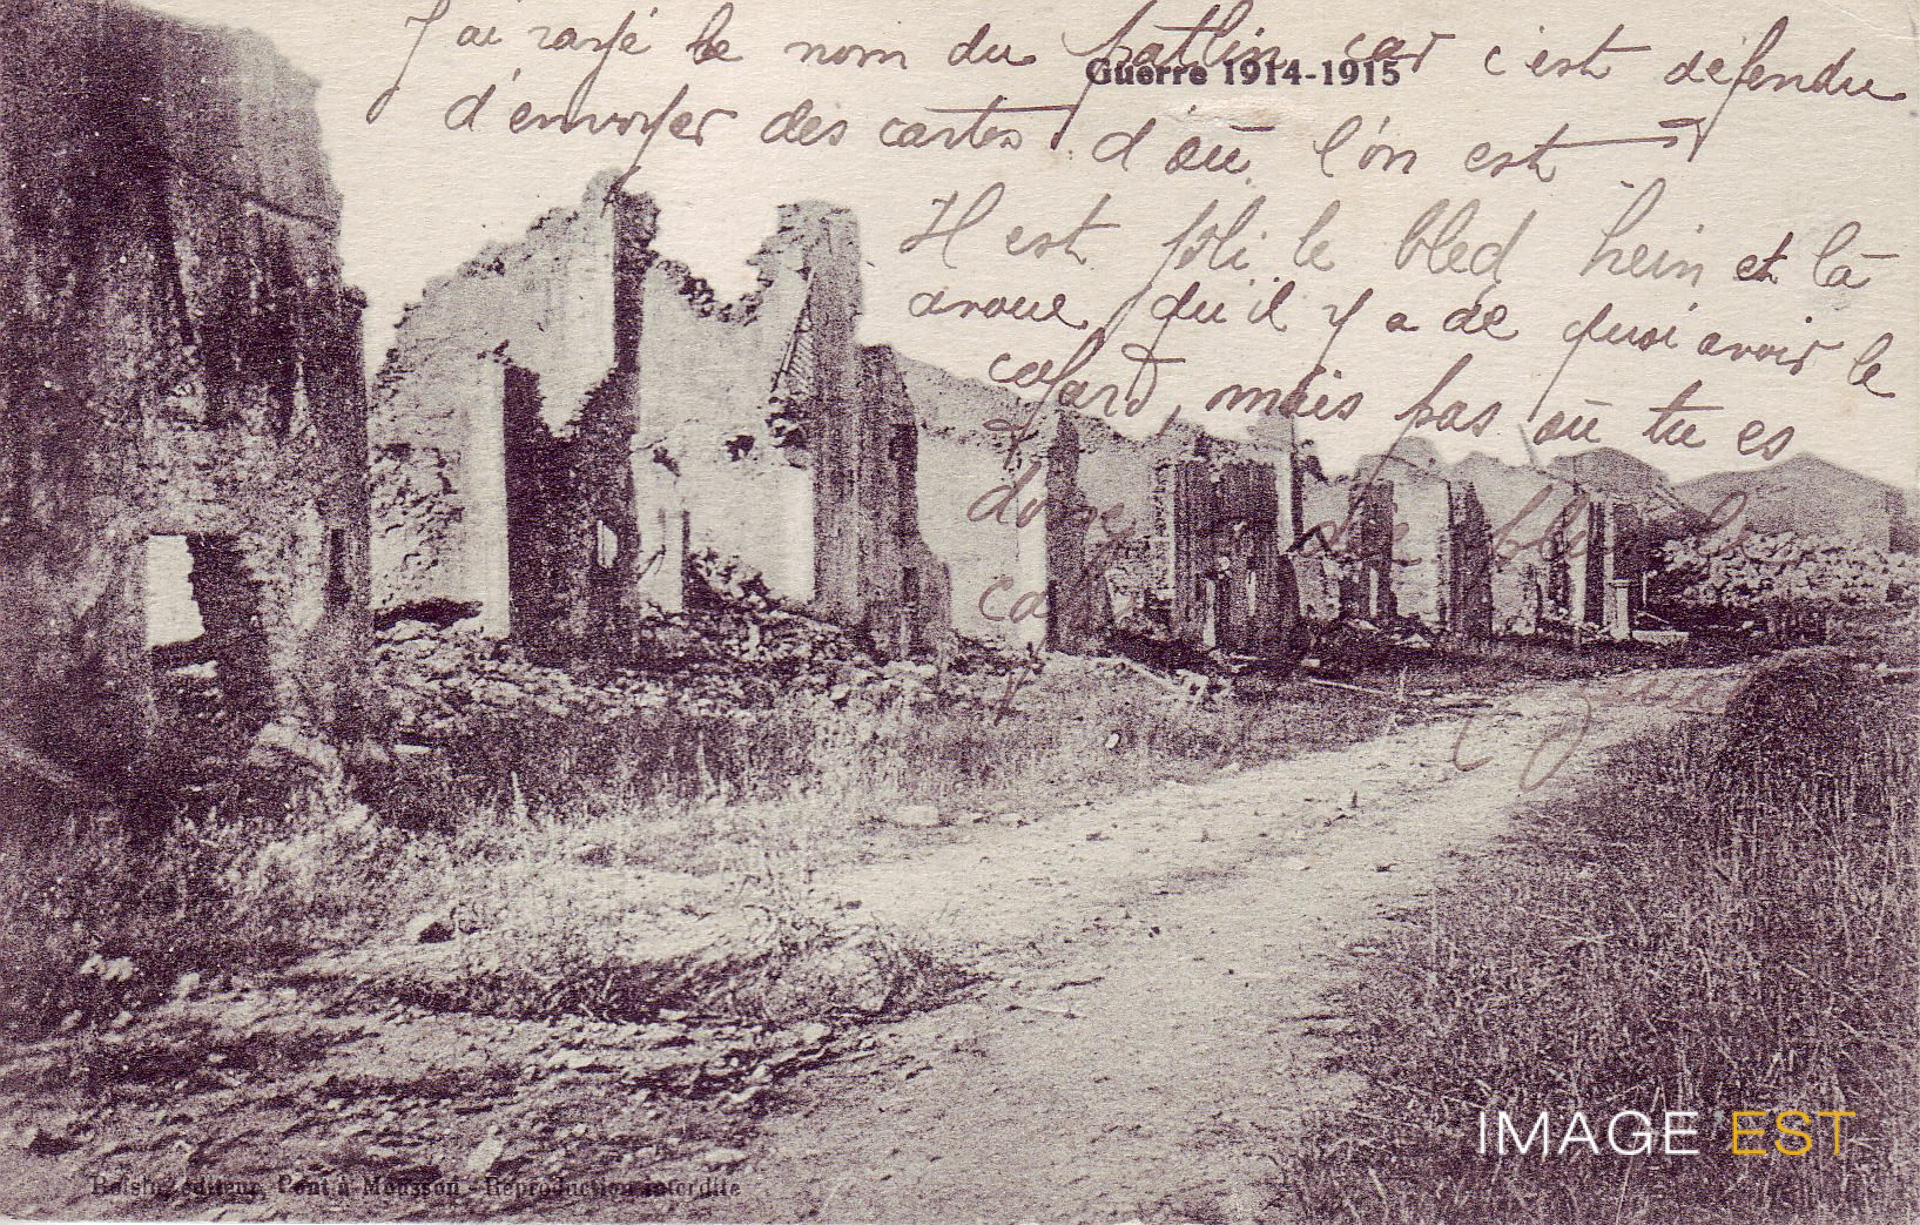 J'ai rayé le nom du patlin car c'est défendu
Guerre 1914-1915
d'envoyer des cartes d'où l'on est
Il est joli le bled hein et là
avoue qu'il y a de quoi avoir le
cafard, mais pas où tu es
IMAGE EST
éditeur, Pont à Mousson - Reproduction interdite